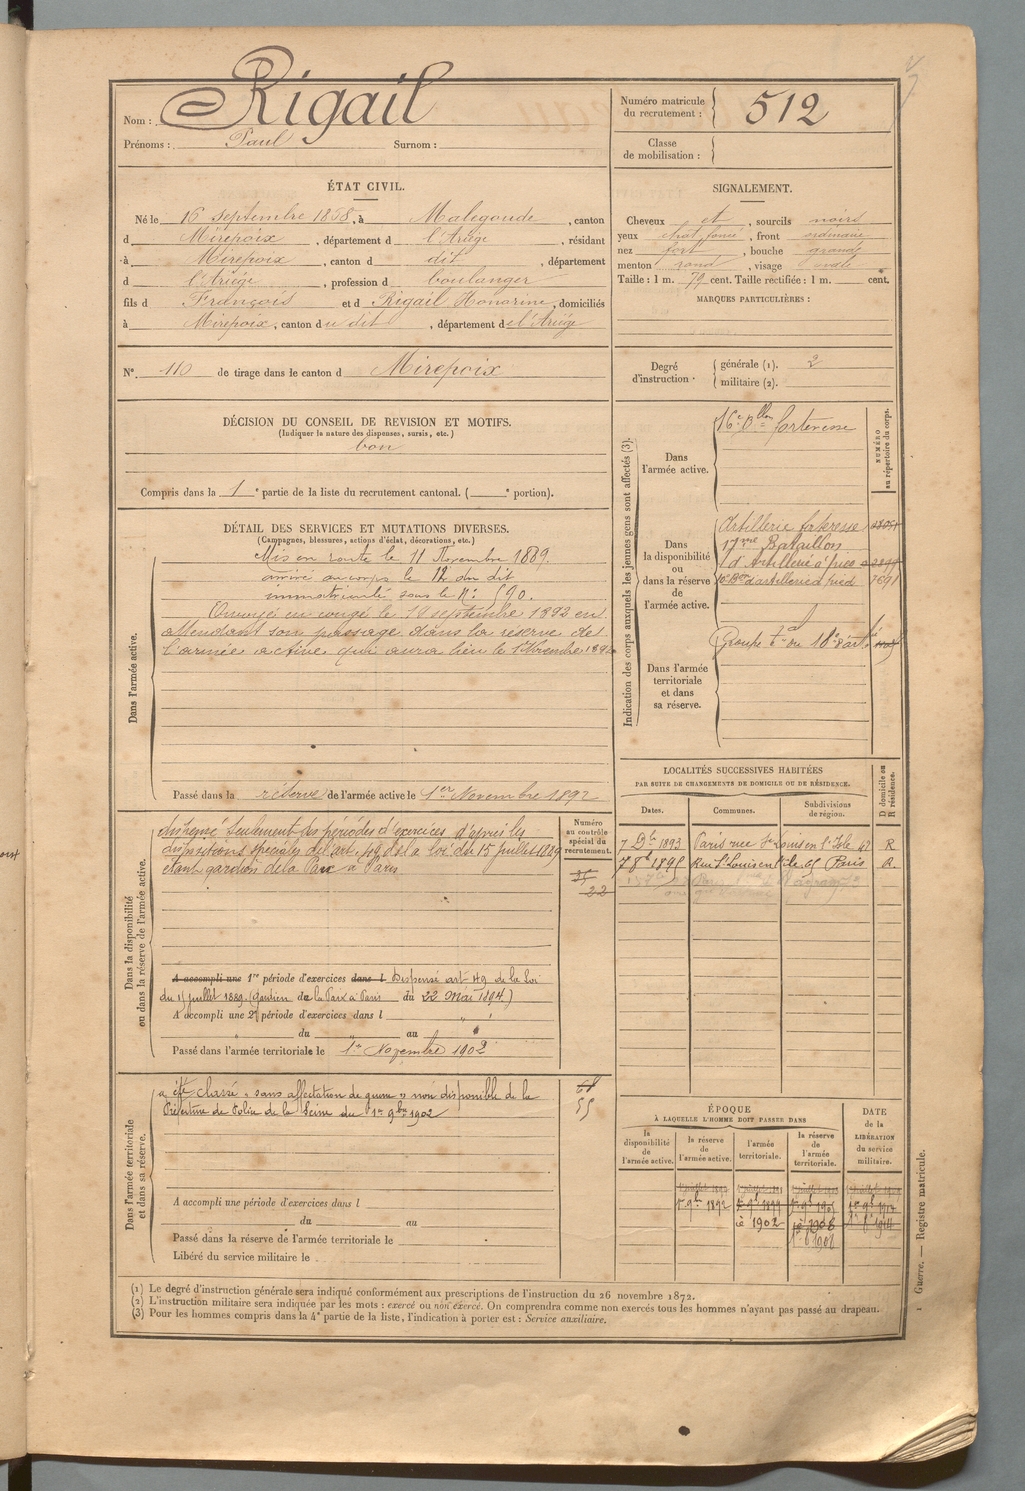 Nom : Rigail
Prénoms : Paul Surnom :
Numéro matricule du recrutement : 512
Classe de mobilisation :
ÉTAT CIVIL.
Né le 16 septembre 1868, à Malegoude, canton
d Mirepoix, département d l'Ariège, résidant
à Mirepoix, canton d dit, département
d l'Ariège, profession d boulanger
fils d François et d Rigail Honorine, domiciliés
à Mirepoix, canton du dit, département de l'Ariège
SIGNALEMENT.
Cheveux et, sourcils noirs
yeux chat foncé, front ordinaire
nez fort, bouche grande
menton rond, visage ovale
Taille : 1 m. 79 cent. Taille rectifiée : 1 m. cent.
MARQUES PARTICULIÈRES :
N° 110 de tirage dans le canton d Mirepoix
Degré d'instruction : générale (1). 2
militaire (2).
DÉCISION DU CONSEIL DE REVISION ET MOTIFS.
(Indiquer la nature des dispenses, sursis, etc.)
bon
Compris dans la 1e partie de la liste du recrutement cantonal. ( e portion).
DÉTAIL DES SERVICES ET MUTATIONS DIVERSES.
(Campagnes, blessures, actions d'éclat, décorations, etc.)
Dans l'armée active.
Mis en route le 11 Novembre 1889.
arrivé au corps le 12 du dit
immatriculé sous le N° 590.
Envoyé en congé le 19 septembre 1892 en
attendant son passage dans la réserve de
l'armée active qui aura lieu le 1er Novembre 1892
Passé dans la réserve de l'armée active le 1er Novembre 1892
Indication des corps auxquels les jeunes gens sont affectés (3).
NUMÉRO au répertoire du corps.
Dans l'armée active.
16e Bllon forteresse
Dans la disponibilité ou dans la réserve de l'armée active.
Artillerie forteresse
17me Bataillon
d'Artillerie à pied
d'artillerie à pied 7691
Dans l'armée territoriale et dans sa réserve.
Groupe tal du 18e
LOCALITÉS SUCCESSIVES HABITÉES
PAR SUITE DE CHANGEMENTS DE DOMICILE OU DE RÉSIDENCE.
Dates. Communes. Subdivisions de région. D domicile ou R résidence.
7 Dbre 1893 Paris rue St Louis en l'Isle 42 R
7 8bre 1895 Rue St Louis en l'île 65 Paris R.
Dans la disponibilité ou dans la réserve de l'armée active.
Numéro au contrôle spécial du recrutement.
dispensé seulement des périodes d'exercices d'après les
dispositions spéciales de l'art. 49 de la loi du 15 juillet 1889
étant gardien de la Paix à Paris.
22
A accompli une 1re période d'exercices dans l Dispensé art 49 de la loi
du 15 juillet 1889. (Gardien de la Paix à Paris du 22 Mai 1894)
A accompli une 2e période d'exercices dans l
du au
Passé dans l'armée territoriale le 1er Novembre 1902
Dans l'armée territoriale et dans sa réserve.
a été classé « sans affectation de guerre » non disponible de la
Préfecture de Police de la Seine du 1er 9bre 1902
55
A accompli une période d'exercices dans l
du au
Passé dans la réserve de l'armée territoriale le
Libéré du service militaire le
ÉPOQUE
À LAQUELLE L'HOMME DOIT PASSER DANS
la disponibilité de l'armée active.
la réserve de l'armée active.
l'armée territoriale.
la réserve de l'armée territoriale.
DATE de la LIBÉRATION du service militaire.
1er 9bre 1892
1er 9bre 1899
1902
1908
(1) Le degré d'instruction générale sera indiqué conformément aux prescriptions de l'instruction du 26 novembre 1872.
(2) L'instruction militaire sera indiquée par les mots : exercé ou non exercé. On comprendra comme non exercés tous les hommes n'ayant pas passé au drapeau.
(3) Pour les hommes compris dans la 4e partie de la liste, l'indication à porter est : Service auxiliaire.
1 Guerre. — Registre matricule.